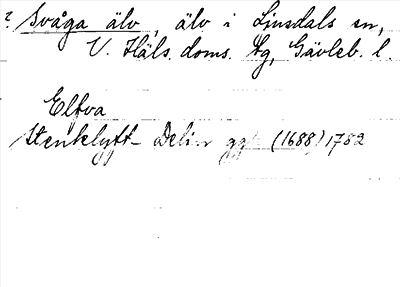 ? Svåga älv, älv i Ljusdals sn,
V. Häls. doms. tg, Gävleb. l.
Elfva
Stenklyft- Delin ggk (1688) 1782